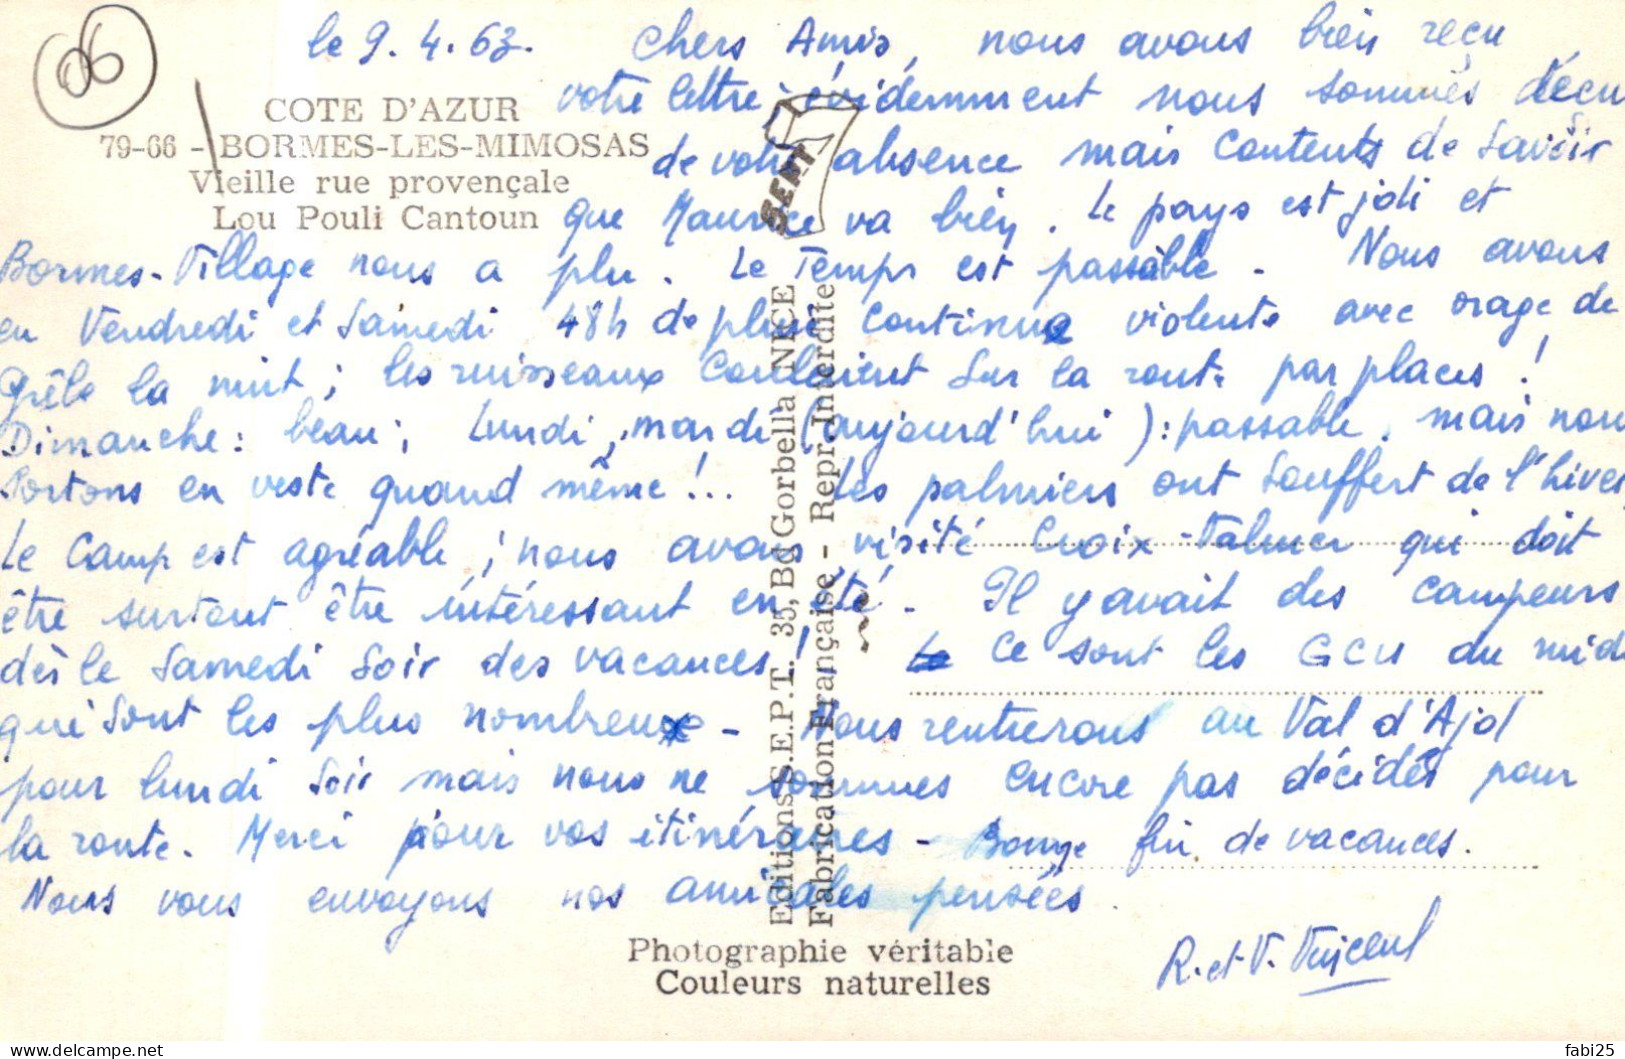 06
le 9.4.63. Chers Amis, nous avons bien reçu
votre lettre ; évidemment nous sommes déçus
COTE D'AZUR
79-66 - BORMES-LES-MIMOSAS
Vieille rue provençale
Lou Pouli Cantoun
de votre absence mais contents de savoir
que Maurice va bien. Le pays est joli et
Bormes-Village nous a plu. Le Temps est passable - Nous avons
eu Vendredi et Samedi 48h de pluie continue violente avec orage de
Grêle la nuit ; les ruisseaux coulaient sur la route par places !
Dimanche : beau ; Lundi, mardi (aujourd'hui) : passable, mais nous
sortons en veste quand même !... Les palmiers ont souffert de l'hiver
Le Camp est agréable ; nous avons visité Croix-Valmer qui doit
être surtout être intéressant en été. Il y avait des campeurs
dès le Samedi soir des vacances ! Ce sont les GCU du midi
qui sont les plus nombreux - Nous rentrerons au Val d'Ajol
pour lundi soir mais nous ne sommes encore pas décidés pour
la route. Merci pour vos itinéraires - Bonne fin de vacances.
Nous vous envoyons nos amicales pensées.
R. et V. Vincent
SEPT
Editions S.E.P.T. 35, Bd Gorbella NICE
Fabrication Française - Repr. Interdite
Photographie véritable
Couleurs naturelles
fabi25